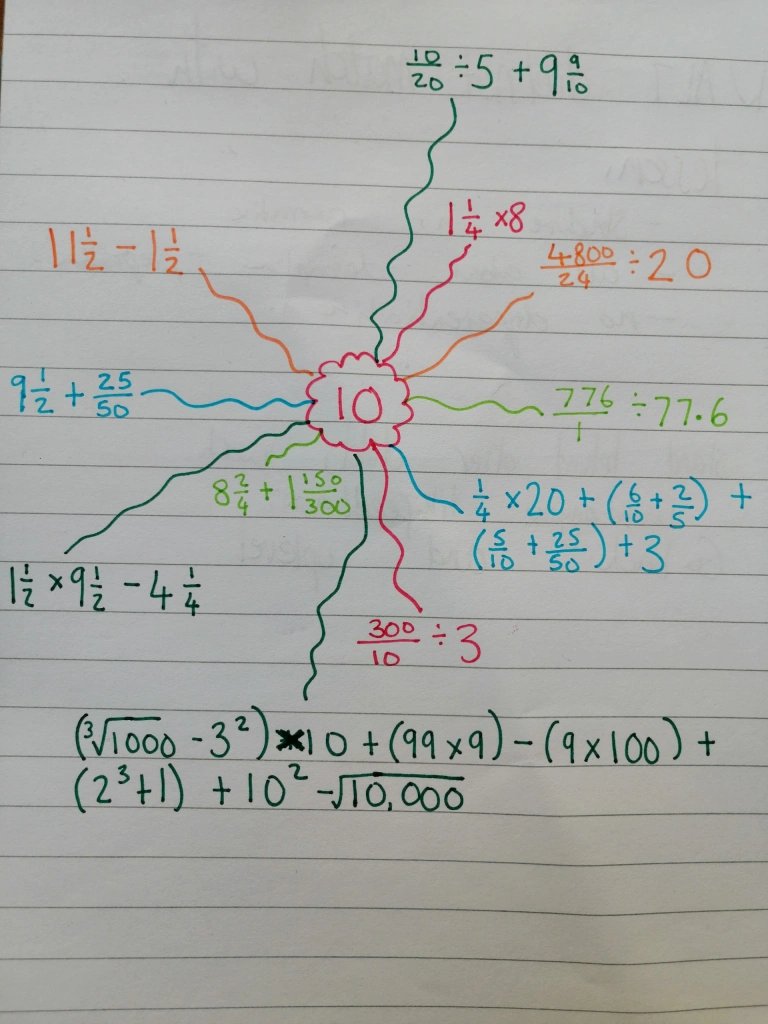 10/20 ÷ 5 + 9 9/10
1 1/4 × 8
11 1/2 − 1 1/2
4800/24 ÷ 20
9 1/2 + 25/50
10
776/1 ÷ 77.6
8 2/4 + 1 150/300
1/4 × 20 + (6/10 + 2/5) +
(5/10 + 25/50) + 3
1 1/2 × 9 1/2 − 4 1/4
300/10 ÷ 3
(³√1000 − 3²) × 10 + (99 × 9) − (9 × 100) +
(2³ + 1) + 10² − √10,000